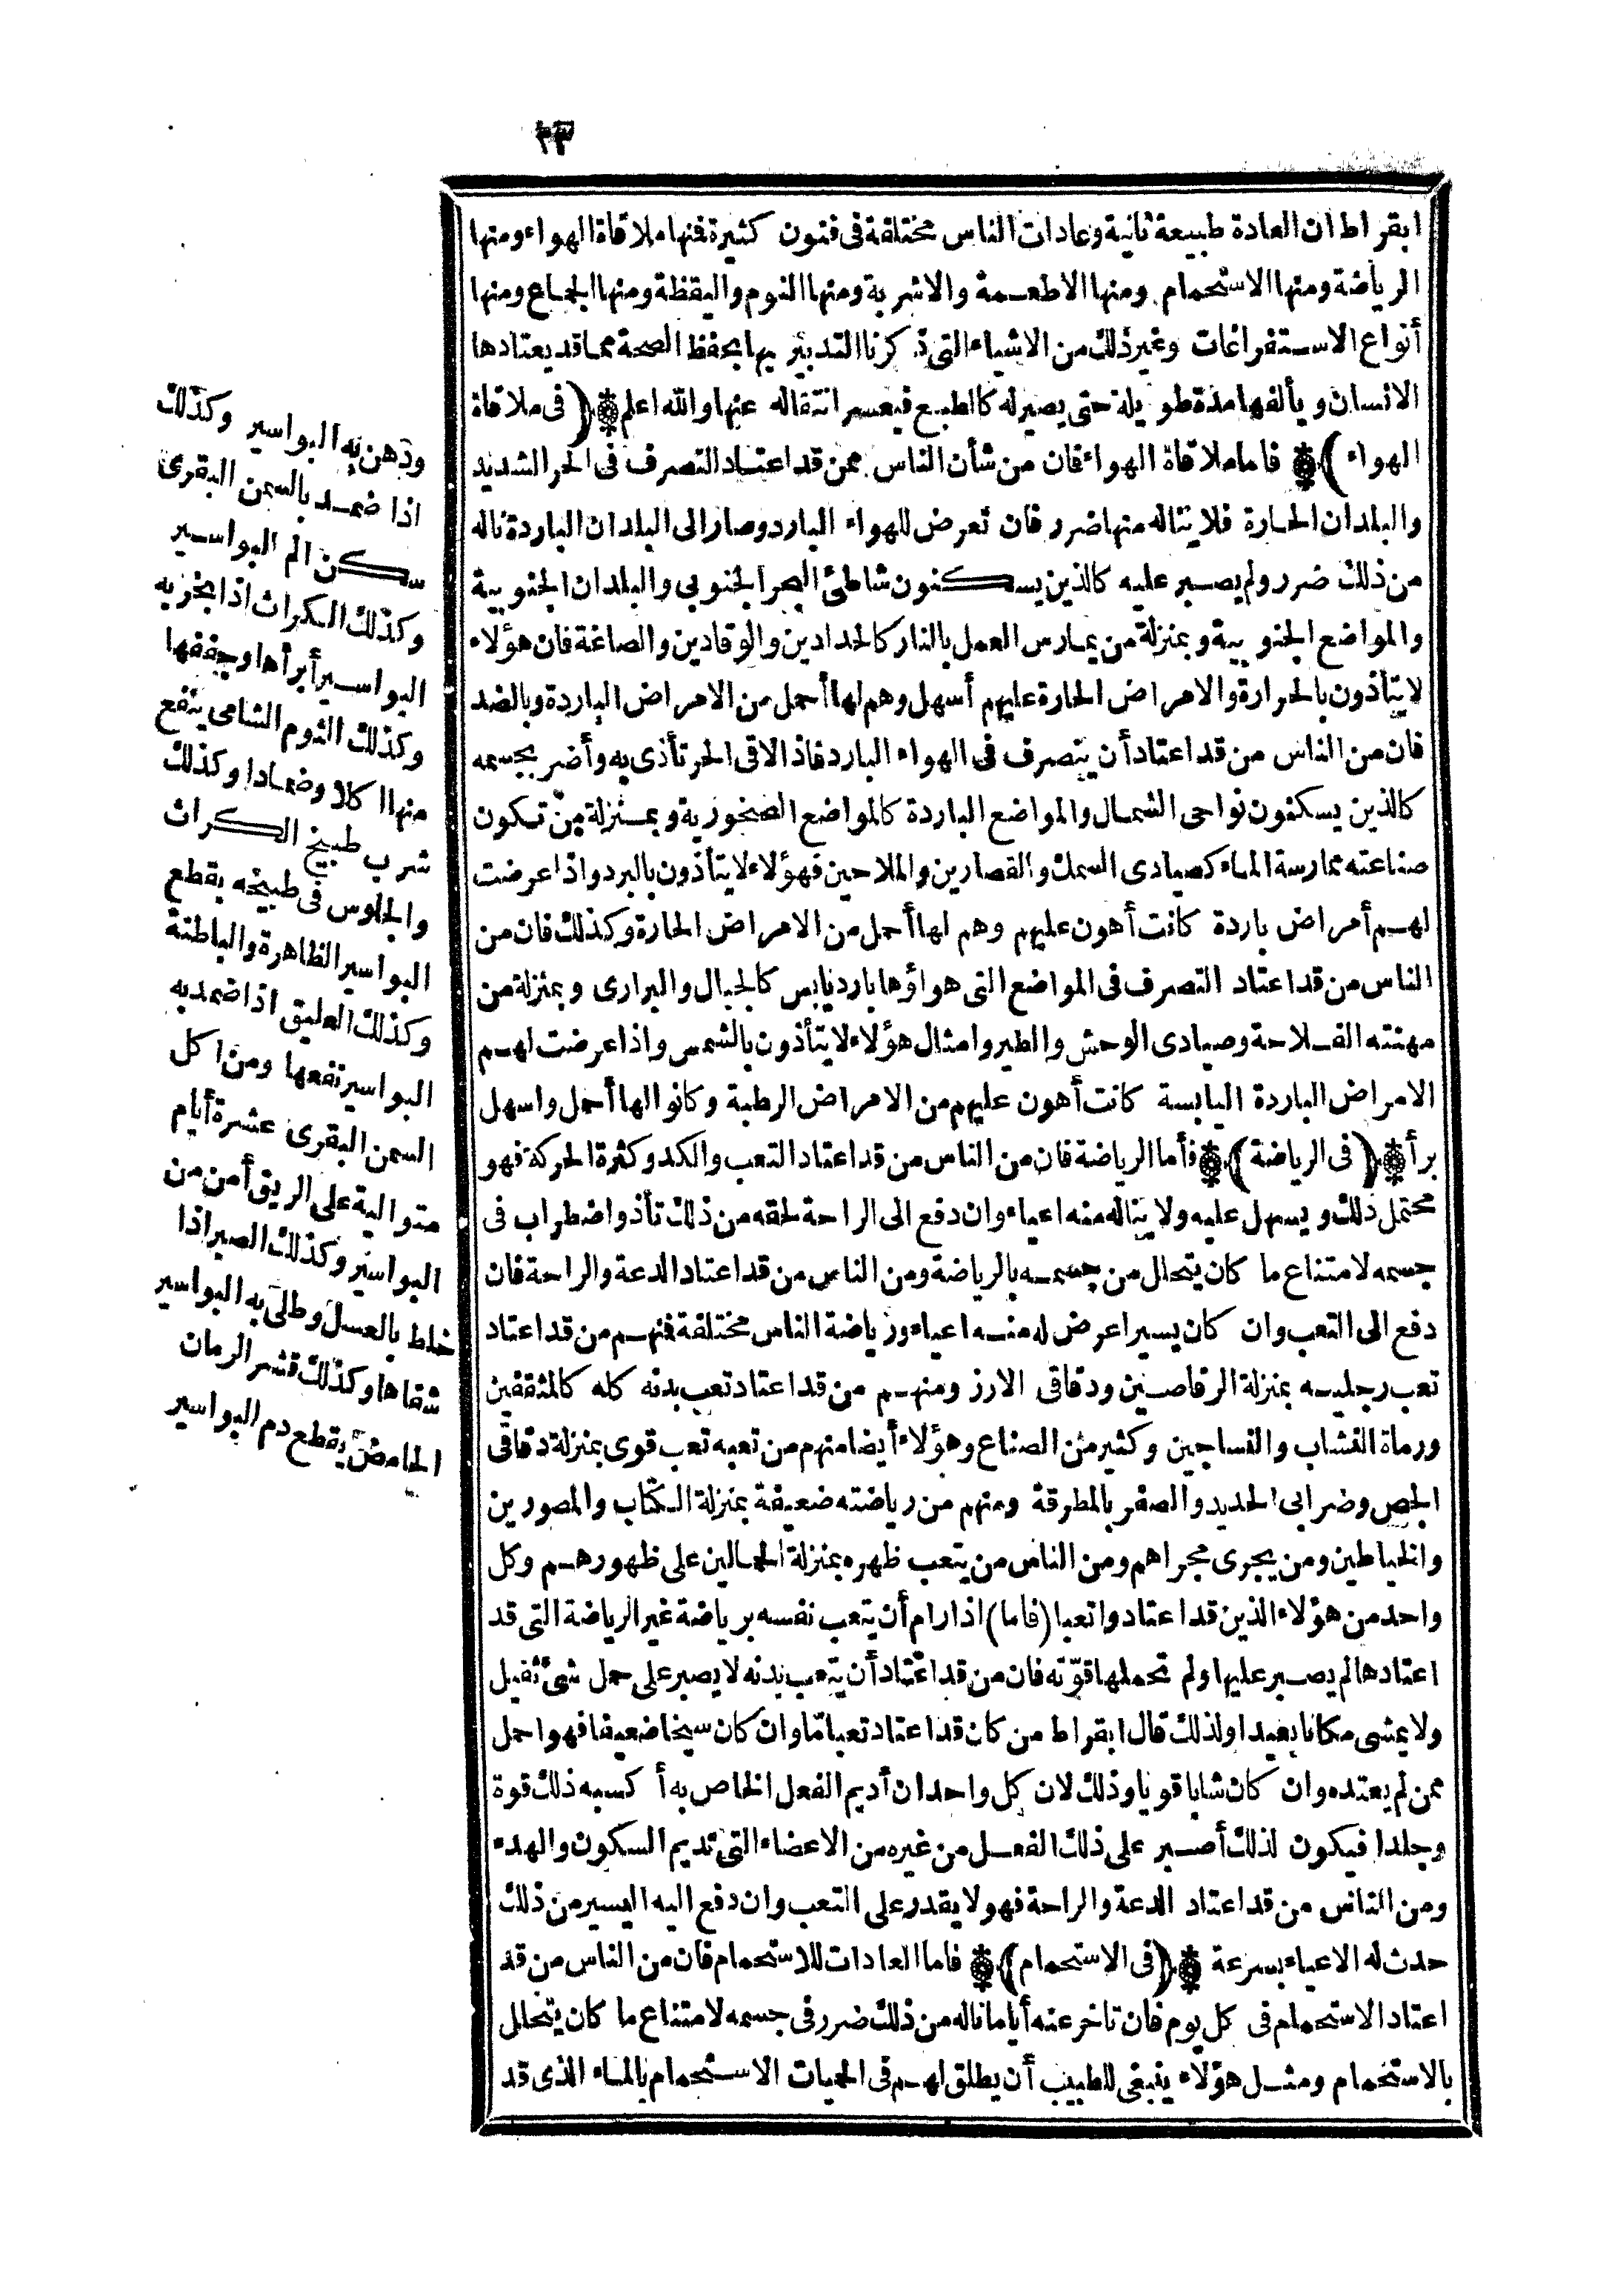 ٢٣
ابقراط ان العادة طبيعة ثانية وعادات الناس مختلفة فى فنون كثيرة فنها ملاقاة الهواء ومنها
الرياضة ومنها الاستحمام ومنها الاطعمة والاشربة ومنها النوم واليقظة ومنها الجماع ومنها
أنواع الاستفراغات وغير ذلك من الاشياء التى ذكرنا التدبير بها بحفظ الصحة مما قد يعتادها
الانسان ويألفها مدة طويلة حتى يصير له كالطبع فيعسر انتقاله عنها والله اعلم (فى ملاقاة
الهواء) فاما ملاقاة الهواء فان من شأن الناس ممن قد اعتاد التصرف فى الحر الشديد
والبلدان الحارة فلا يناله منها ضرر فان تعرض للهواء البارد وصار الى البلدان الباردة ناله
من ذلك ضرر ولم يصبر عليه كالذين يسكنون شاطئ البحر الجنوبي والبلدان الجنوبية
والمواضع الجنوبية وبمنزلة من يمارس العمل بالنار كالحدادين والوقادين والصاغة فان هؤلاء
لا يتأذون بالحرارة والامراض الحارة عليهم أسهل وهم لها أحمل من الامراض الباردة وبالضد
فان من الناس من قد اعتاد أن يتصرف فى الهواء البارد فاذا لاقى الحر تأذى به وأضر بجسمه
كالذين يسكنون نواحى الشمال والمواضع الباردة كالمواضع الصخورية وبمنزلة من تكون
صناعته ممارسة الماء كصيادى السمك والقصارين والملاحين فهؤلاء لا يتأذون بالبرد واذا عرضت
لهم أمراض باردة كانت أهون عليهم وهم لها أحمل من الامراض الحارة وكذلك فان من
الناس من قد اعتاد التصرف فى المواضع التى هواؤها بارد يابس كالجبال والبرارى وبمنزلة من
مهنته الفلاحة وصيادى الوحش والطير وامثال هؤلاء لا يتأذون بالشمس واذا عرضت لهم
الامراض الباردة اليابسة كانت أهون عليهم من الامراض الرطبة وكانوا لها أحمل واسهل
برأ (فى الرياضة) فأما الرياضة فان من الناس من قد اعتاد التعب والكد وكثرة الحركة فهو
محتمل ذلك ويسهل عليه ولا يناله منه اعياء وان دفع الى الراحة لحقه من ذلك تأذ واضطراب فى
جسمه لامتناع ما كان يتحلل من جسمه بالرياضة ومن الناس من قد اعتاد الدعة والراحة فان
دفع الى التعب وان كان يسيرا عرض له منه اعياء ورياضة الناس مختلفة فنهم من قد اعتاد
تعب رجليه بمنزلة الرقاصين ودقاقى الارز ومنهم من قد اعتاد تعب بدنه كله كالمثقفين
ورماة النشاب والنساجين وكثير من الصناع وهؤلاء أيضا منهم من تعبه تعب قوى بمنزلة دقاقى
الجص وضرابى الحديد والصفر بالمطرقة ومنهم من رياضته ضعيفة بمنزلة الكتاب والمصورين
والخياطين ومن يجرى مجراهم ومن الناس من يتعب ظهره بمنزلة الحمالين على ظهورهم وكل
واحد من هؤلاء الذين قد اعتادوا تعبا (فاما) اذا رام أن يتعب نفسه برياضة غير الرياضة التى قد
اعتادها لم يصبر عليها ولم تحملها قوّته فان من قد اعتاد أن يتعب بدنه لا يصبر على حمل شئ ثقيل
ولا يمشى مكانا بعيدا ولذلك قال ابقراط من كان قد اعتاد تعبا مّا وان كان سيخا ضعيفا فهو احمل
ممن لم يعتده وان كان شابا قويا وذلك لان كل واحد ان أديم الفعل الخاص به أكسبه ذلك قوة
وجلدا فيكون لذلك أصبر على ذلك الفعل من غيره من الاعضاء التى تديم السكون والهدء
ومن الناس من قد اعتاد الدعة والراحة فهو لا يقدر على التعب وان دفع اليه اليسير من ذلك
حدث له الاعياء بسرعة (فى الاستحمام) فاما العادات للاستحمام فان من الناس من قد
اعتاد الاستحمام فى كل يوم فان تاخر عنه أياما ناله من ذلك ضرر فى جسمه لامتناع ما كان يتحلل
بالاستحمام ومثل هؤلاء ينبغى للطبيب أن يطلق لهم فى الحميات الاستحمام بالماء الذى قد
ودهن به البواسير وكذلك
اذا ضمد بالسمن البقرى
سكن الم البواسير
وكذلك الكراث اذا بخر به
البواسير أبرأها وجففها
وكذلك الثوم الشامى ينفع
منها اكلا وضمادا وكذلك
شرب طبيخ الكراث
والجلوس فى طبيخه يقطع
البواسير الظاهرة والباطنة
وكذلك العليق اذا ضمد به
البواسير نفعها ومن اكل
السمن البقرى عشرة أيام
متوالية على الريق أمن من
البواسير وكذلك الصبر اذا
خلط بالعسل وطلى به البواسير
شفاها وكذلك قشر الرمان
الحامض يقطع دم البواسير